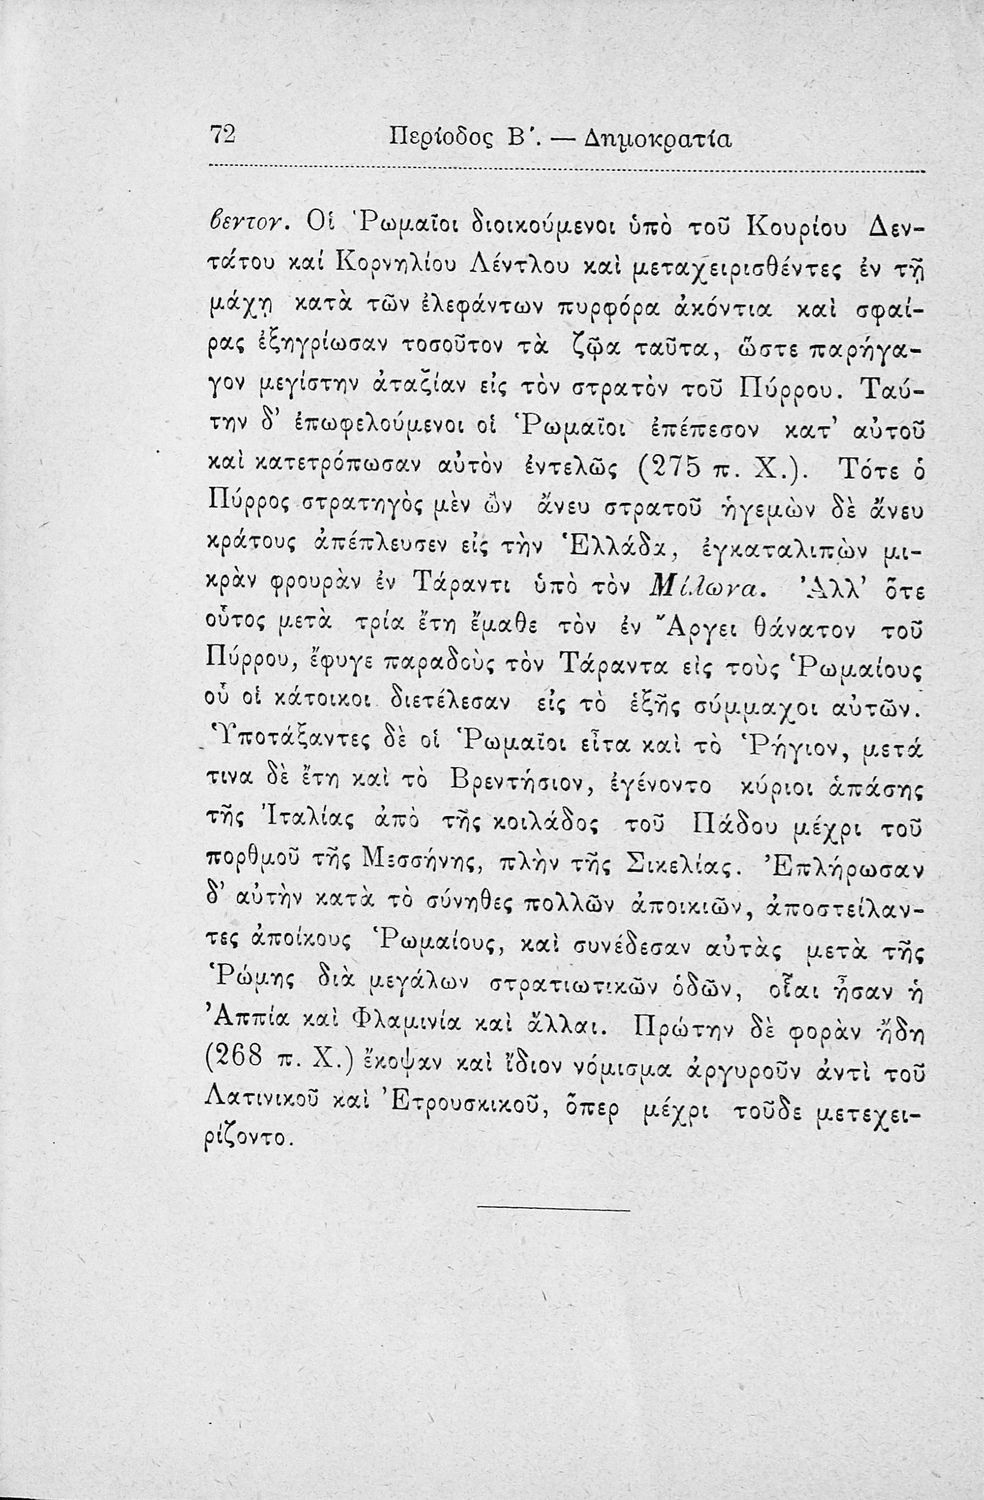 72 Περίοδος Β΄. — Δημοκρατία
βεντον. Οἱ Ῥωμαῖοι διοικούμενοι ὑπὸ τοῦ Κουρίου Δεν-
τάτου καί Κορνηλίου Λέντλου καὶ μεταχειρισθέντες ἐν τῇ
μάχῃ κατὰ τῶν ἐλεφάντων πυρφόρα ἀκόντια καὶ σφαί-
ρας ἐξηγρίωσαν τοσοῦτον τὰ ζῷα ταῦτα, ὥστε παρήγα-
γον μεγίστην ἀταξίαν εἰς τὸν στρατὸν τοῦ Πύρρου. Ταύ-
την δ' ἐπωφελούμενοι οἱ Ῥωμαῖοι ἐπέπεσον κατ' αὐτοῦ
καὶ κατετρόπωσαν αὐτὸν ἐντελῶς (275 π. Χ.). Τότε ὁ
Πύρρος στρατηγὸς μὲν ὢν ἄνευ στρατοῦ ἡγεμὼν δὲ ἄνευ
κράτους ἀπέπλευσεν εἰς τὴν Ἑλλάδα, ἐγκαταλιπὼν μι-
κρὰν φρουρὰν ἐν Τάραντι ὑπὸ τὸν Μίλωνα. Ἀλλ' ὅτε
οὗτος μετὰ τρία ἔτη ἔμαθε τὸν ἐν Ἄργει θάνατον τοῦ
Πύρρου, ἔφυγε παραδοὺς τὸν Τάραντα εἰς τοὺς Ῥωμαίους
οὗ οἱ κάτοικοι διετέλεσαν εἰς τὸ ἑξῆς σύμμαχοι αὐτῶν.
Ὑποτάξαντες δὲ οἱ Ῥωμαῖοι εἶτα καὶ τὸ Ῥήγιον, μετά
τινα δὲ ἔτη καὶ τὸ Βρεντήσιον, ἐγένοντο κύριοι ἁπάσης
τῆς Ἰταλίας ἀπὸ τῆς κοιλάδος τοῦ Πάδου μέχρι τοῦ
πορθμοῦ τῆς Μεσσήνης, πλὴν τῆς Σικελίας. Ἐπλήρωσαν
δ' αὐτὴν κατὰ τὸ σύνηθες πολλῶν ἀποικιῶν, ἀποστείλαν-
τες ἀποίκους Ῥωμαίους, καὶ συνέδεσαν αὐτὰς μετὰ τῆς
Ῥώμης διὰ μεγάλων στρατιωτικῶν ὁδῶν, οἷαι ἦσαν ἡ
Ἀππία καὶ Φλαμινία καὶ ἄλλαι. Πρώτην δὲ φορὰν ἤδη
(268 π. Χ.) ἔκοψαν καὶ ἴδιον νόμισμα ἀργυροῦν ἀντὶ τοῦ
Λατινικοῦ καὶ Ἐτρουσκικοῦ, ὅπερ μέχρι τοῦδε μετεχει-
ρίζοντο.